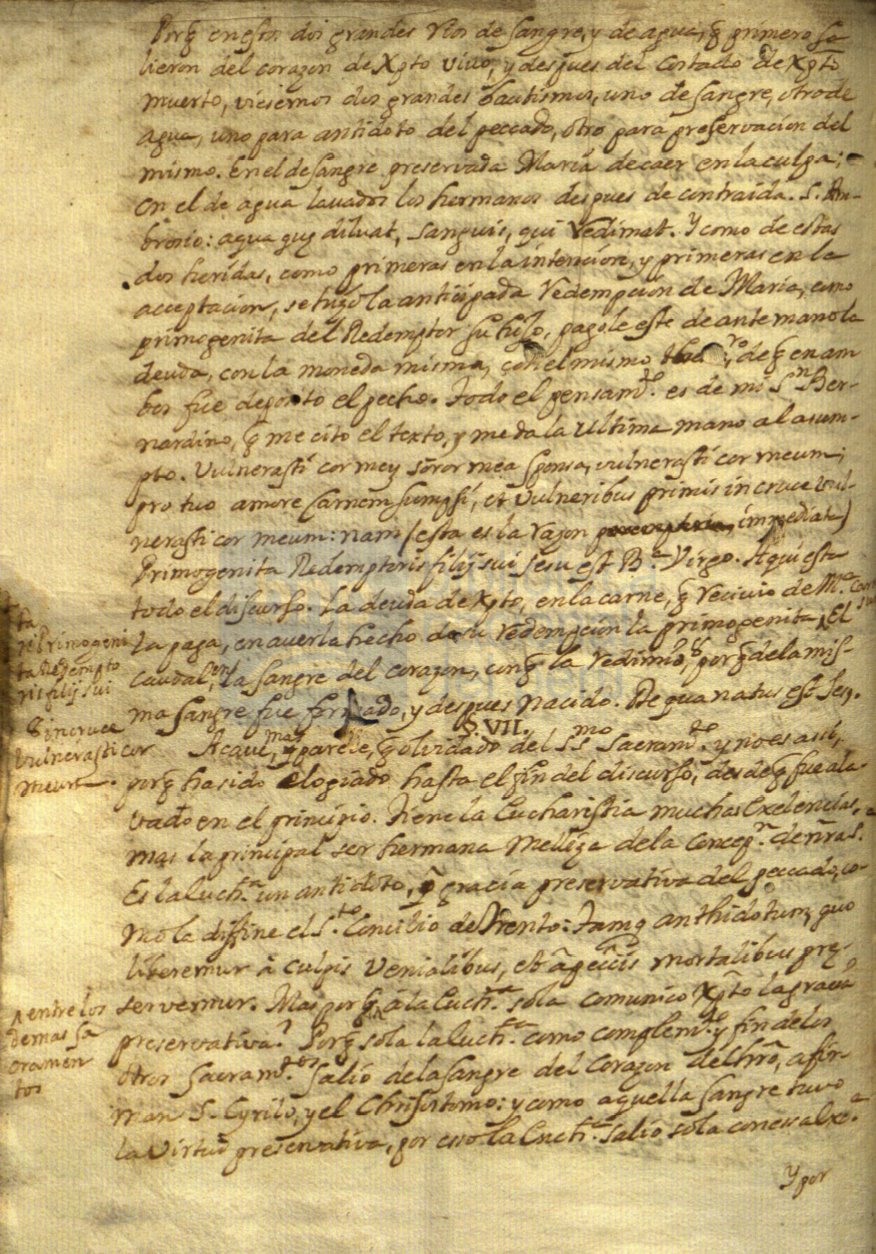 Porq̃ en estos dos grandes rios de sangre, y de agua, q̃ primero sa
lieron del corazon de Xp̃to vivo, y despues del costado de Xp̃to
muerto, viesemos dos grandes bautismos, uno de sangre, otro de
agua, uno para antidoto del peccado, otro para preservacion del
mismo. En el de sangre preservada Maria de caer en la culpa;
en el de agua lavados los hermanos despues de contraida. S. Am-
brosio: aqua quę diluat, sanguis, qui redimat. Y como de estas
dos heridas, como primeras en la intencion, y primeras en la
acceptacion, se hizo la anticipada redempcion de Maria, como
primogenita del Redemptor su hijo, pagóle este de antemano la
deuda, con la moneda misma, con el mismo de q̃ en am
bos fue deposito el pecho. Todo el pensam.to es de mi S.n Ber-
nardino, q̃ me citó el texto, y me da la ultima mano al asum-
pto. Vulnerasti cor meũ soror mea sponsa, vulnerasti cor meum;
pro tuo amore carnem sumpsi, et vulneribus primis in cruce vul-
nerasti cor meum: nam (esta es la razon immediata)
Primogenita Redemptoris filij sui Jesu est B.a Virgo. Aqui esta
todo el discurso. La deuda de Xp̃to, en la carne, q̃ recivio de M.a
La paga, en averla hecho de su redempcion la primogenita, El
caudal, en la sangre del corazon, con q̃ la redimió, porq̃ de la mis-
ma sangre fue formado, y despues nacido. De qua natus est Jesus.
§. VII.
Acaue, mas y parece, q̃ olvidado del SS.mo Sacram.to y no es asi,
porq̃ ha sido elogiado hasta el fin del discurso, desde q̃ fue ala
vado en el principio. Tiene la Eucharistia muchas excelencias,
mas la principal ser hermana melliza de la Concep.n de nr̃a S.a
Es la Euch.a un antidoto, q̃ gracia preservativa del peccado, co-
mo la diffine el S.to Concilio de Trento: Tamq̃ anthidotum, quo
liberemur à culpis venialibus, et à peccatis mortalibus pre-
servemur. Mas porq̃ à la Euch.a sola comunicó Xp̃to la gracia
preservativa? Porq̃ sola la Euch.a como complem.to y fin de los
otros Sacram.tos salio de la sangre del corazon de Chr̃o, afir-
man S. Cyrilo, y el Chrisostomo: y como aquella sangre tuvo
la virtud preservativa, por esso la Euch.a salio sola con essa exc.a
Y por
ta
Primogeni
ta Redempto
ris filij sui
in cruce
vulnerasti cor
meum.
entre los
demas Sa
cramen
tos